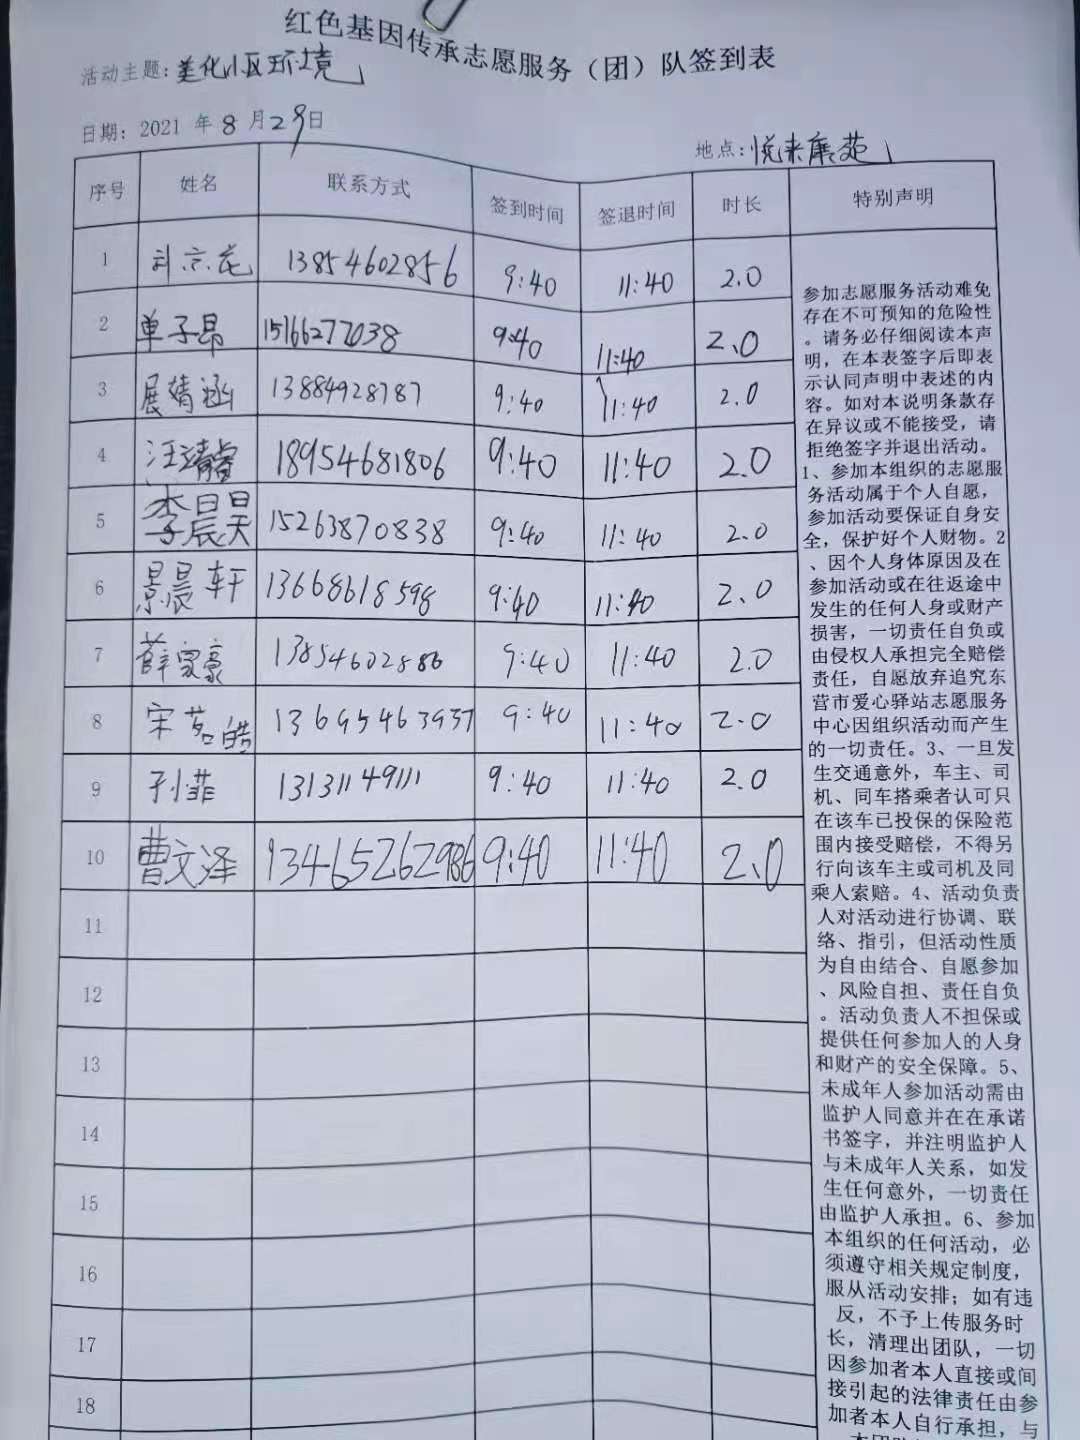 红色基因传承志愿服务（团）队签到表
活动主题：美化小区环境
日期：2021 年 8 月 29 日
地点：悦来康苑
序号 姓名 联系方式 签到时间 签退时间 时长 特别声明
1 刘京花 13854602856 9:40 11:40 2.0
2 单子昂 15166277038 9:40 11:40 2.0
3 展婧涵 13884928787 9:40 11:40 2.0
4 汪靖睿 18954681806 9:40 11:40 2.0
5 李晨昊 15263870838 9:40 11:40 2.0
6 景晨轩 13668618598 9:40 11:40 2.0
7 薛家豪 13854602886 9:40 11:40 2.0
8 宋茗皓 13695463937 9:40 11:40 2.0
9 孙菲 13131149111 9:40 11:40 2.0
10 曹文泽 13465262986 9:40 11:40 2.0
11
12
13
14
15
16
17
18
参加志愿服务活动难免
存在不可预知的危险性
。请务必仔细阅读本声
明，在本表签字后即表
示认同声明中表述的内
容。如对本说明条款存
在异议或不能接受，请
拒绝签字并退出活动。
1、参加本组织的志愿服
务活动属于个人自愿，
参加活动要保证自身安
全，保护好个人财物。2
、因个人身体原因及在
参加活动或在往返途中
发生的任何人身或财产
损害，一切责任自负或
由侵权人承担完全赔偿
责任，自愿放弃追究东
营市爱心驿站志愿服务
中心因组织活动而产生
的一切责任。3、一旦发
生交通意外，车主、司
机、同车搭乘者认可只
在该车已投保的保险范
围内接受赔偿，不得另
行向该车主或司机及同
乘人索赔。4、活动负责
人对活动进行协调、联
络、指引，但活动性质
为自由结合、自愿参加
、风险自担、责任自负
。活动负责人不担保或
提供任何参加人的人身
和财产的安全保障。5、
未成年人参加活动需由
监护人同意并在在承诺
书签字，并注明监护人
与未成年人关系，如发
生任何意外，一切责任
由监护人承担。6、参加
本组织的任何活动，必
须遵守相关规定制度，
服从活动安排；如有违
反，不予上传服务时
长，清理出团队，一切
因参加者本人直接或间
接引起的法律责任由参
加者本人自行承担，与